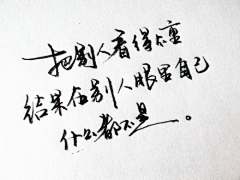 把别人看得太重
结果在别人眼里自己
什么都不是。